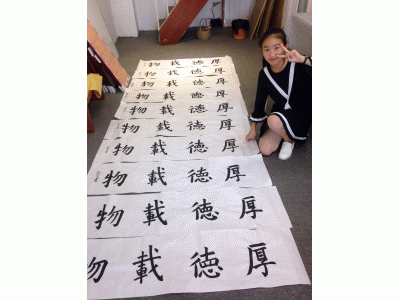 厚德載物
厚德載物
厚德載物
厚德載物
厚德載物
厚德載物
厚德載物
厚德載物
厚德載物
厚德載物